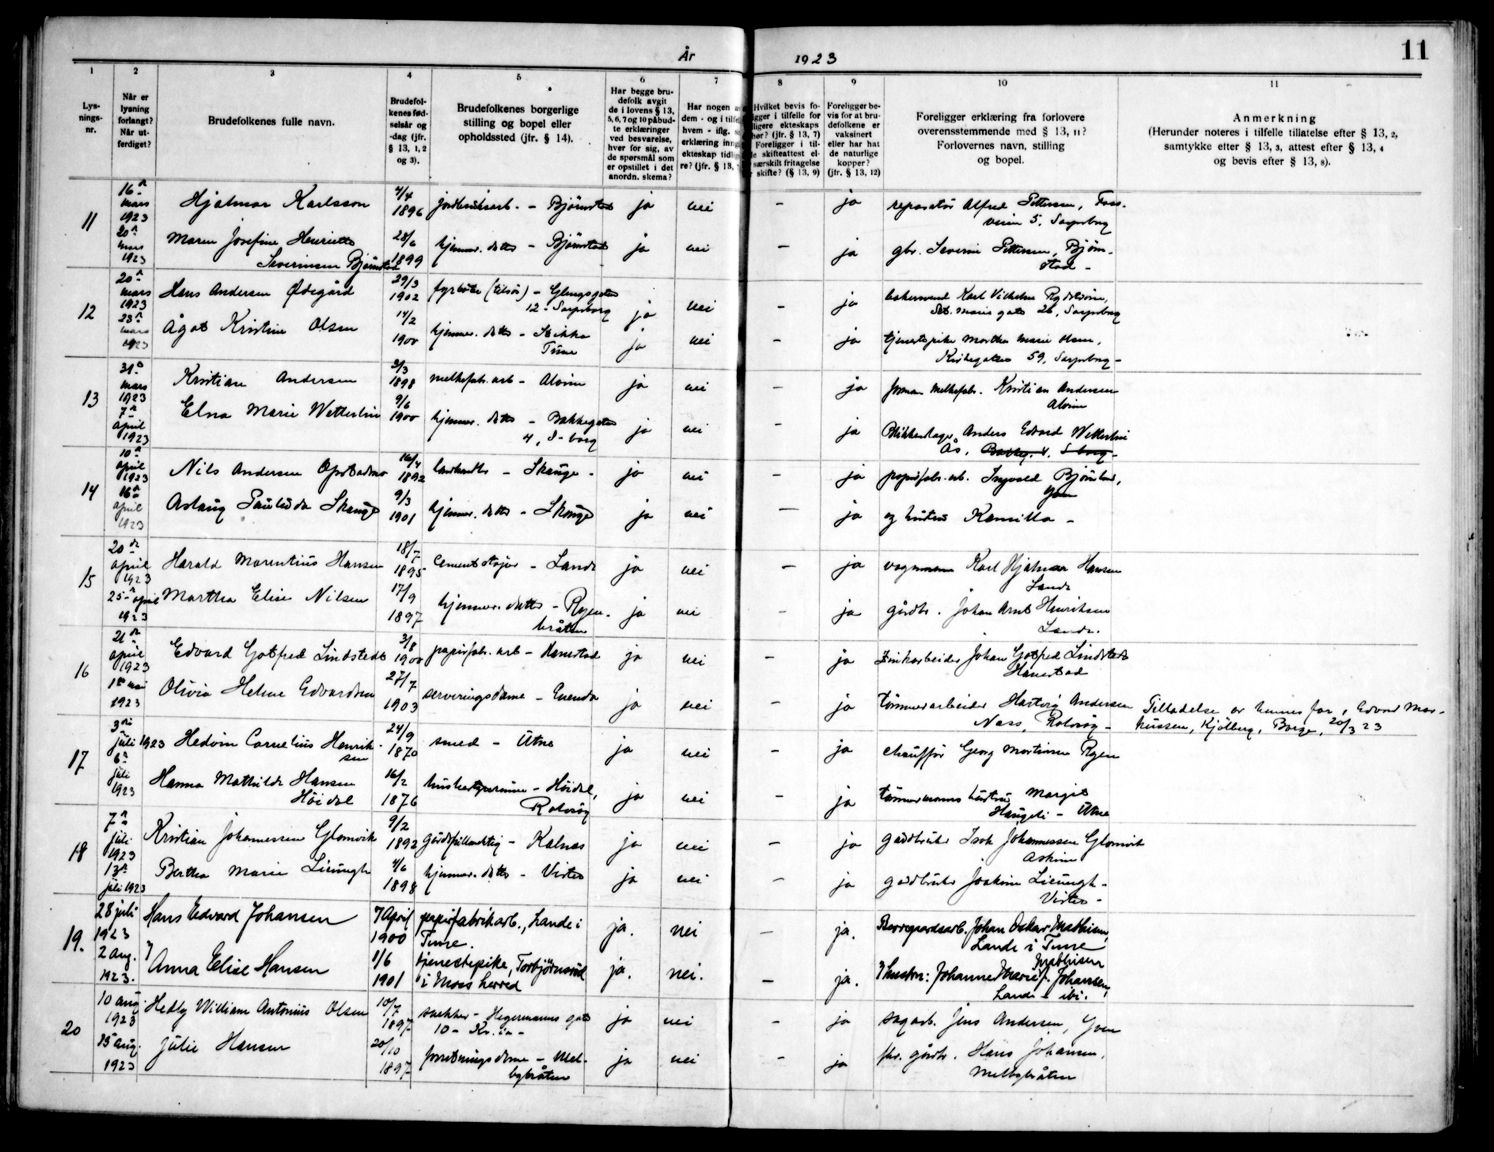 År 1923
11
1 2 3 4 5 6 7 8 9 10 11
Lys-
nings-
nr.
Når er
lysning
forlangt?
Når ut-
ferdiget?
Brudefolkenes fulle navn.
Brudefol-
kenes fød-
selsår og
-dag (jfr.
§ 13, 1, 2
og 3).
Brudefolkenes borgerlige
stilling og bopel eller
opholdssted (jfr. § 14).
Har begge bru-
defolk avgit
de i lovens § 13,
5, 6, 7 og 10 påbud-
te erklæringer
ved besvarelse,
hver for sig, av
de spørsmål som
er opstillet i det
anordn. skema?
Har nogen av
dem - og i tilfelle
hvem - iflg.
erklæring inng
ekteskap tidlig
re? (jfr. § 13,
Hvilket bevis fo-
igger i tilfelle for
ligere ekteskaps
hør? (jfr. § 13, 7)
Foreligger i til-
le skifteattest el-
særskilt fritagelse
skifte? (§ 13, 9)
Foreligger be-
vis for at bru-
defolkene er
vaksinert
eller har hat
de naturlige
kopper?
(jfr. § 13, 12)
Foreligger erklæring fra forlovere
overensstemmende med § 13, 11?
Forlovernes navn, stilling
og bopel.
Anmerkning
(Herunder noteres i tilfelle tillatelse efter § 13, 2,
samtykke efter § 13, 3, attest efter § 13, 4
og bevis efter § 13, 8).
11
16 mars 1923
Hjalmar Karlsson
4/4 1896
jordbruksarb. - Bjørnstad
ja nei - ja
reparatør Alfred Pettersen,
veien 5, Sarpsborg
20 mars 1923
Maren Josefine Henriette
Severinsen Bjørnstad
28/6 1899
hjemmev. datter - Bjørnstad
ja nei - ja
gbr. Severin Pettersen, Bjørn-
stad -
12
20 mars 1923
Hans Andersen Ødegård
29/3 1902
fyrbøter (tilsjøs) - Glengsgaten
12 - Sarpsborg
ja nei - ja
bakersvend Karl Vilhelm
St. Maries gate 26, Sarpsborg
23 mars 1923
Ågot Kristine Olsen
14/2 1900
hjemmev. datter -
Tune
ja nei - ja
tjenestepike Martha Marie Olsen,
Kirkegaten 59, Sarpsborg -
13
31 mars 1923
Kristian Andersen
3/3 1898
melkefabr. arb - Alvim
ja nei - ja
forman melkefabr. Kristian Andersen
Alvim
7 april 1923
Elna Marie Wetterlin
9/6 1900
hjemmev. datter - Bakkegaten
4, S-borg
ja nei - ja
Blikkenslager Anders Edvard Wetterlin
Ås, Bakkeg. 4. S borg -
14
10 april 1923
Nils Andersen Opstadmo
16/4 1892
landhandler - Skauge -
ja nei - ja
papirfabr. arb. Ingvald Bjørnland,
Yven
16 april 1923
Aslaug Skauge
9/3 1901
hjemmev. datter - Skauge
ja nei - ja
og hustru Kamilla -
15
20 april 1923
Harald Marentius Hansen
18/7 1895
cementstøper - Lande
ja nei - ja
vognmann Karl Hjalmar Hansen
Lande
25 april 1923
Martha Elise Nilsen
17/9 1897
hjemmev. datter - Ryen-
bråten
ja nei - ja
gårdbr. Johan Arnt Henriksen
Lande.
16
21 april 1923
Edvard Gotfred Lindstedt
3/8 1900
papirfabr. arb - Hanestad
ja nei - ja
Zinkarbeider Johan Gotfred Lindstedt
Hanestad
1 mai 1923
Olivia Helene Edvardsen
27/7 1903
serveringsdame - Enenda
ja nei - ja
tømmerarbeider Hartvig Andersen
Næss, Rolvsøy -
Tilladelse av hennes far, Edvard Mar-
kussen, Kjølberg, Borge, 20/3 23
17
3 juli 1923
Hedvin Cornelius Henrik-
sen
24/9 1870
smed - Utne
ja nei - ja
chauffør Georg Martinsen Ryen
6 juli 1923
Hanna Mathilde Hansen
Høidal
16/2 1876
husholderske - Høidal,
Rolvsøy
ja nei - ja
tømmermanns hustru Margit
Haugeli - Utne
18
7 juli 1923
Kristian Johannessen Glomvik
9/2 1892
gårdsfullmektig - Kalnes
ja nei - ja
gårdbruker Isak Johannessen Glomvik
Askim
13 juli 1923
Bertha Marie Lieungh
4/6 1898
hjemmev. datter - Vister
ja nei - ja
gårdbruker Joakim Lieungh -
Vister -
19.
28 juli 1923
Hans Edvard Johansen
7 April 1900
papirfabrikarb., Lande i
Tune.
ja. nei - ja.
Bervegaardsarb. Johan Oskar Mathisen,
Lande i Tune
2 aug. 1923.
Anna Elise Hansen
1/6 1901
tjenestepike, Torbjørnsrud
i Moss herred
ja. nei. - ja.
Hustru: Johanne Marie Mathisen f. Johansen,
Lande - ibi.
20
10 aug 1923
Hedley William Antonius Olsen
10/7 1897
snekker - Hegermanns gate
10 - Kr.ia -
ja nei - ja
sagarb. Jens Andersen, Yven
15 aug. 1923
Julie Hansen
20/10 1897
forretningsdame - Mel-
bybråten
ja nei - ja
fhv. gårdbr. Hans Johansen,
Melbybråten